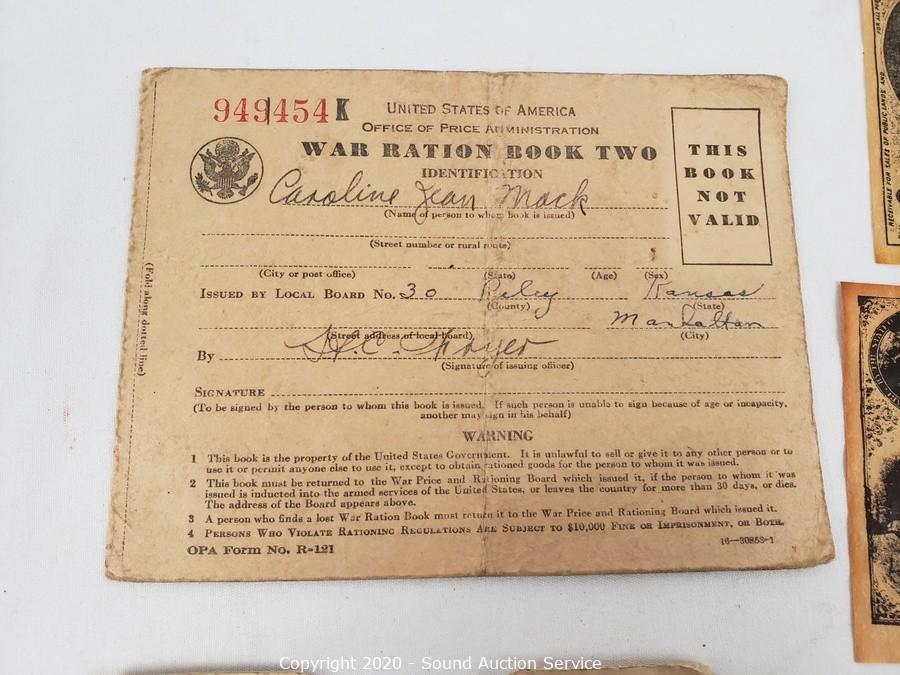 949454 K
UNITED STATES OF AMERICA
OFFICE OF PRICE ADMINISTRATION
WAR RATION BOOK TWO
IDENTIFICATION
THIS
BOOK
NOT
VALID
Caroline Jean Mack
(Name of person to whom book is issued)
(Street number or rural route)
(City or post office) (State) (Age) (Sex)
ISSUED BY LOCAL BOARD NO. 30 Riley Kansas
(County) (State)
Manhattan
(Street address of local board) (City)
By H.C.
(Signature of issuing officer)
(Fold along dotted line)
SIGNATURE
(To be signed by the person to whom this book is issued. If such person is unable to sign because of age or incapacity,
another may sign in his behalf)
WARNING
1 This book is the property of the United States Government. It is unlawful to sell or give it to any other person or to
use it or permit anyone else to use it, except to obtain rationed goods for the person to whom it was issued.
2 This book must be returned to the War Price and Rationing Board which issued it, if the person to whom it was
issued is inducted into the armed services of the United States, or leaves the country for more than 30 days, or dies.
The address of the Board appears above.
3 A person who finds a lost War Ration Book must return it to the War Price and Rationing Board which issued it.
4 PERSONS WHO VIOLATE RATIONING REGULATIONS ARE SUBJECT TO $10,000 FINE OR IMPRISONMENT, OR BOTH.
OPA Form No. R-121
16—30853-1
RECEIVABLE FOR SALES OF PUBLIC LANDS AND
FOR ALL
Copyright 2020 - Sound Auction Service